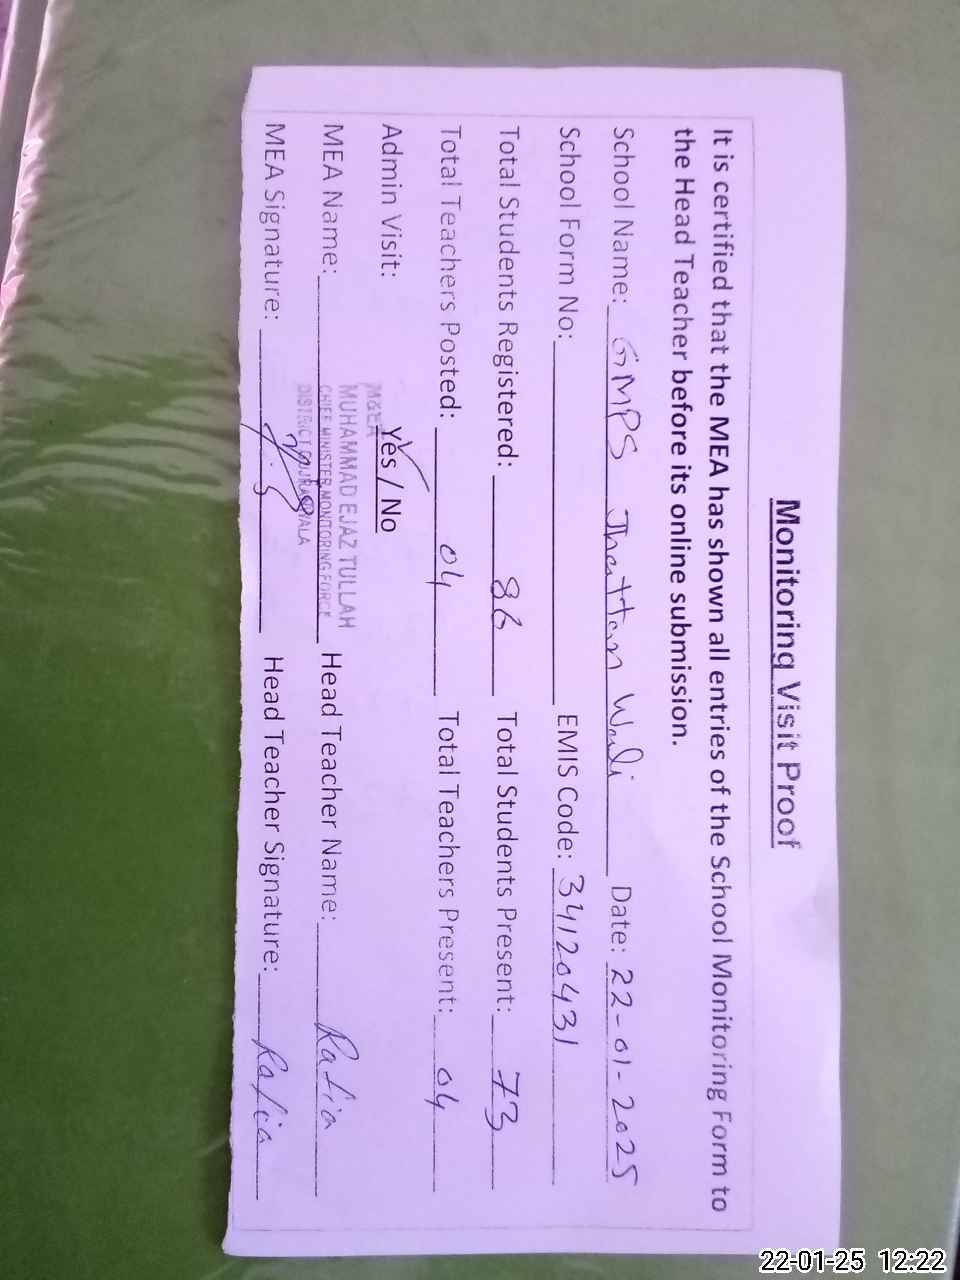 Monitoring Visit Proof
It is certified that the MEA has shown all entries of the School Monitoring Form to
the Head Teacher before its online submission.
School Name: GMPS Jhattan Wali Date: 22-01-2025
School Form No: EMIS Code: 34120431
Total Students Registered: 86 Total Students Present: 73
Total Teachers Posted: 04 Total Teachers Present: 04
Admin Visit: Yes / No
M&EA
MUHAMMAD EJAZ TULLAH
CHIEF MINISTER MONITORING FORCE
DISTRICT GUJRANWALA
MEA Name: Head Teacher Name: Rafia
MEA Signature: Head Teacher Signature: Rafia
22-01-25 12:22